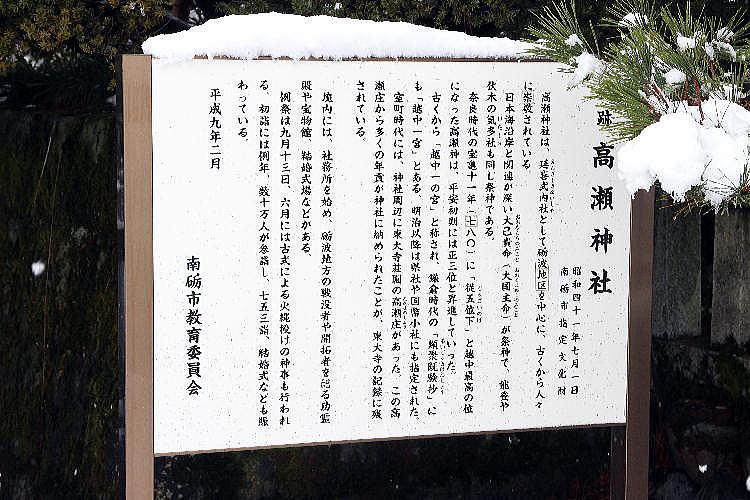 跡 高瀬神社
昭和四十一年七月一日
南砺市指定文化財
高瀬神社は、延喜式内社として砺波地区を中心に、古くから人々
に崇敬されている
日本海沿岸と関連が深い大己貴命(大国主命)が祭神で、能登や
伏木の気多社も同じ祭神である。
奈良時代の宝亀十一年(七八〇)に「従五位下」と越中最高の位
になった高瀬神は、平安初期には正三位と昇進していった。
古くから「越中一の宮」と称され、鎌倉時代の「類聚既験抄」に
も「越中一宮」とある。明治以降は県社や国幣小社にも指定された。
室町時代には、神社周辺に東大寺荘園の高瀬庄があった。この高
瀬庄から多くの年貢が神社に納められたことが、東大寺の記録に残
されている。
境内には、社務所を始め、砺波地方の戦没者や開拓者を祀る功霊
殿や宝物館、結婚式場などがある。
例祭は九月十三日、六月には古式による火縄授けの神事も行われ
る。初詣には例年、数十万人が参詣し、七五三詣、結婚式なども賑
わっている。
平成九年二月
南砺市教育委員会